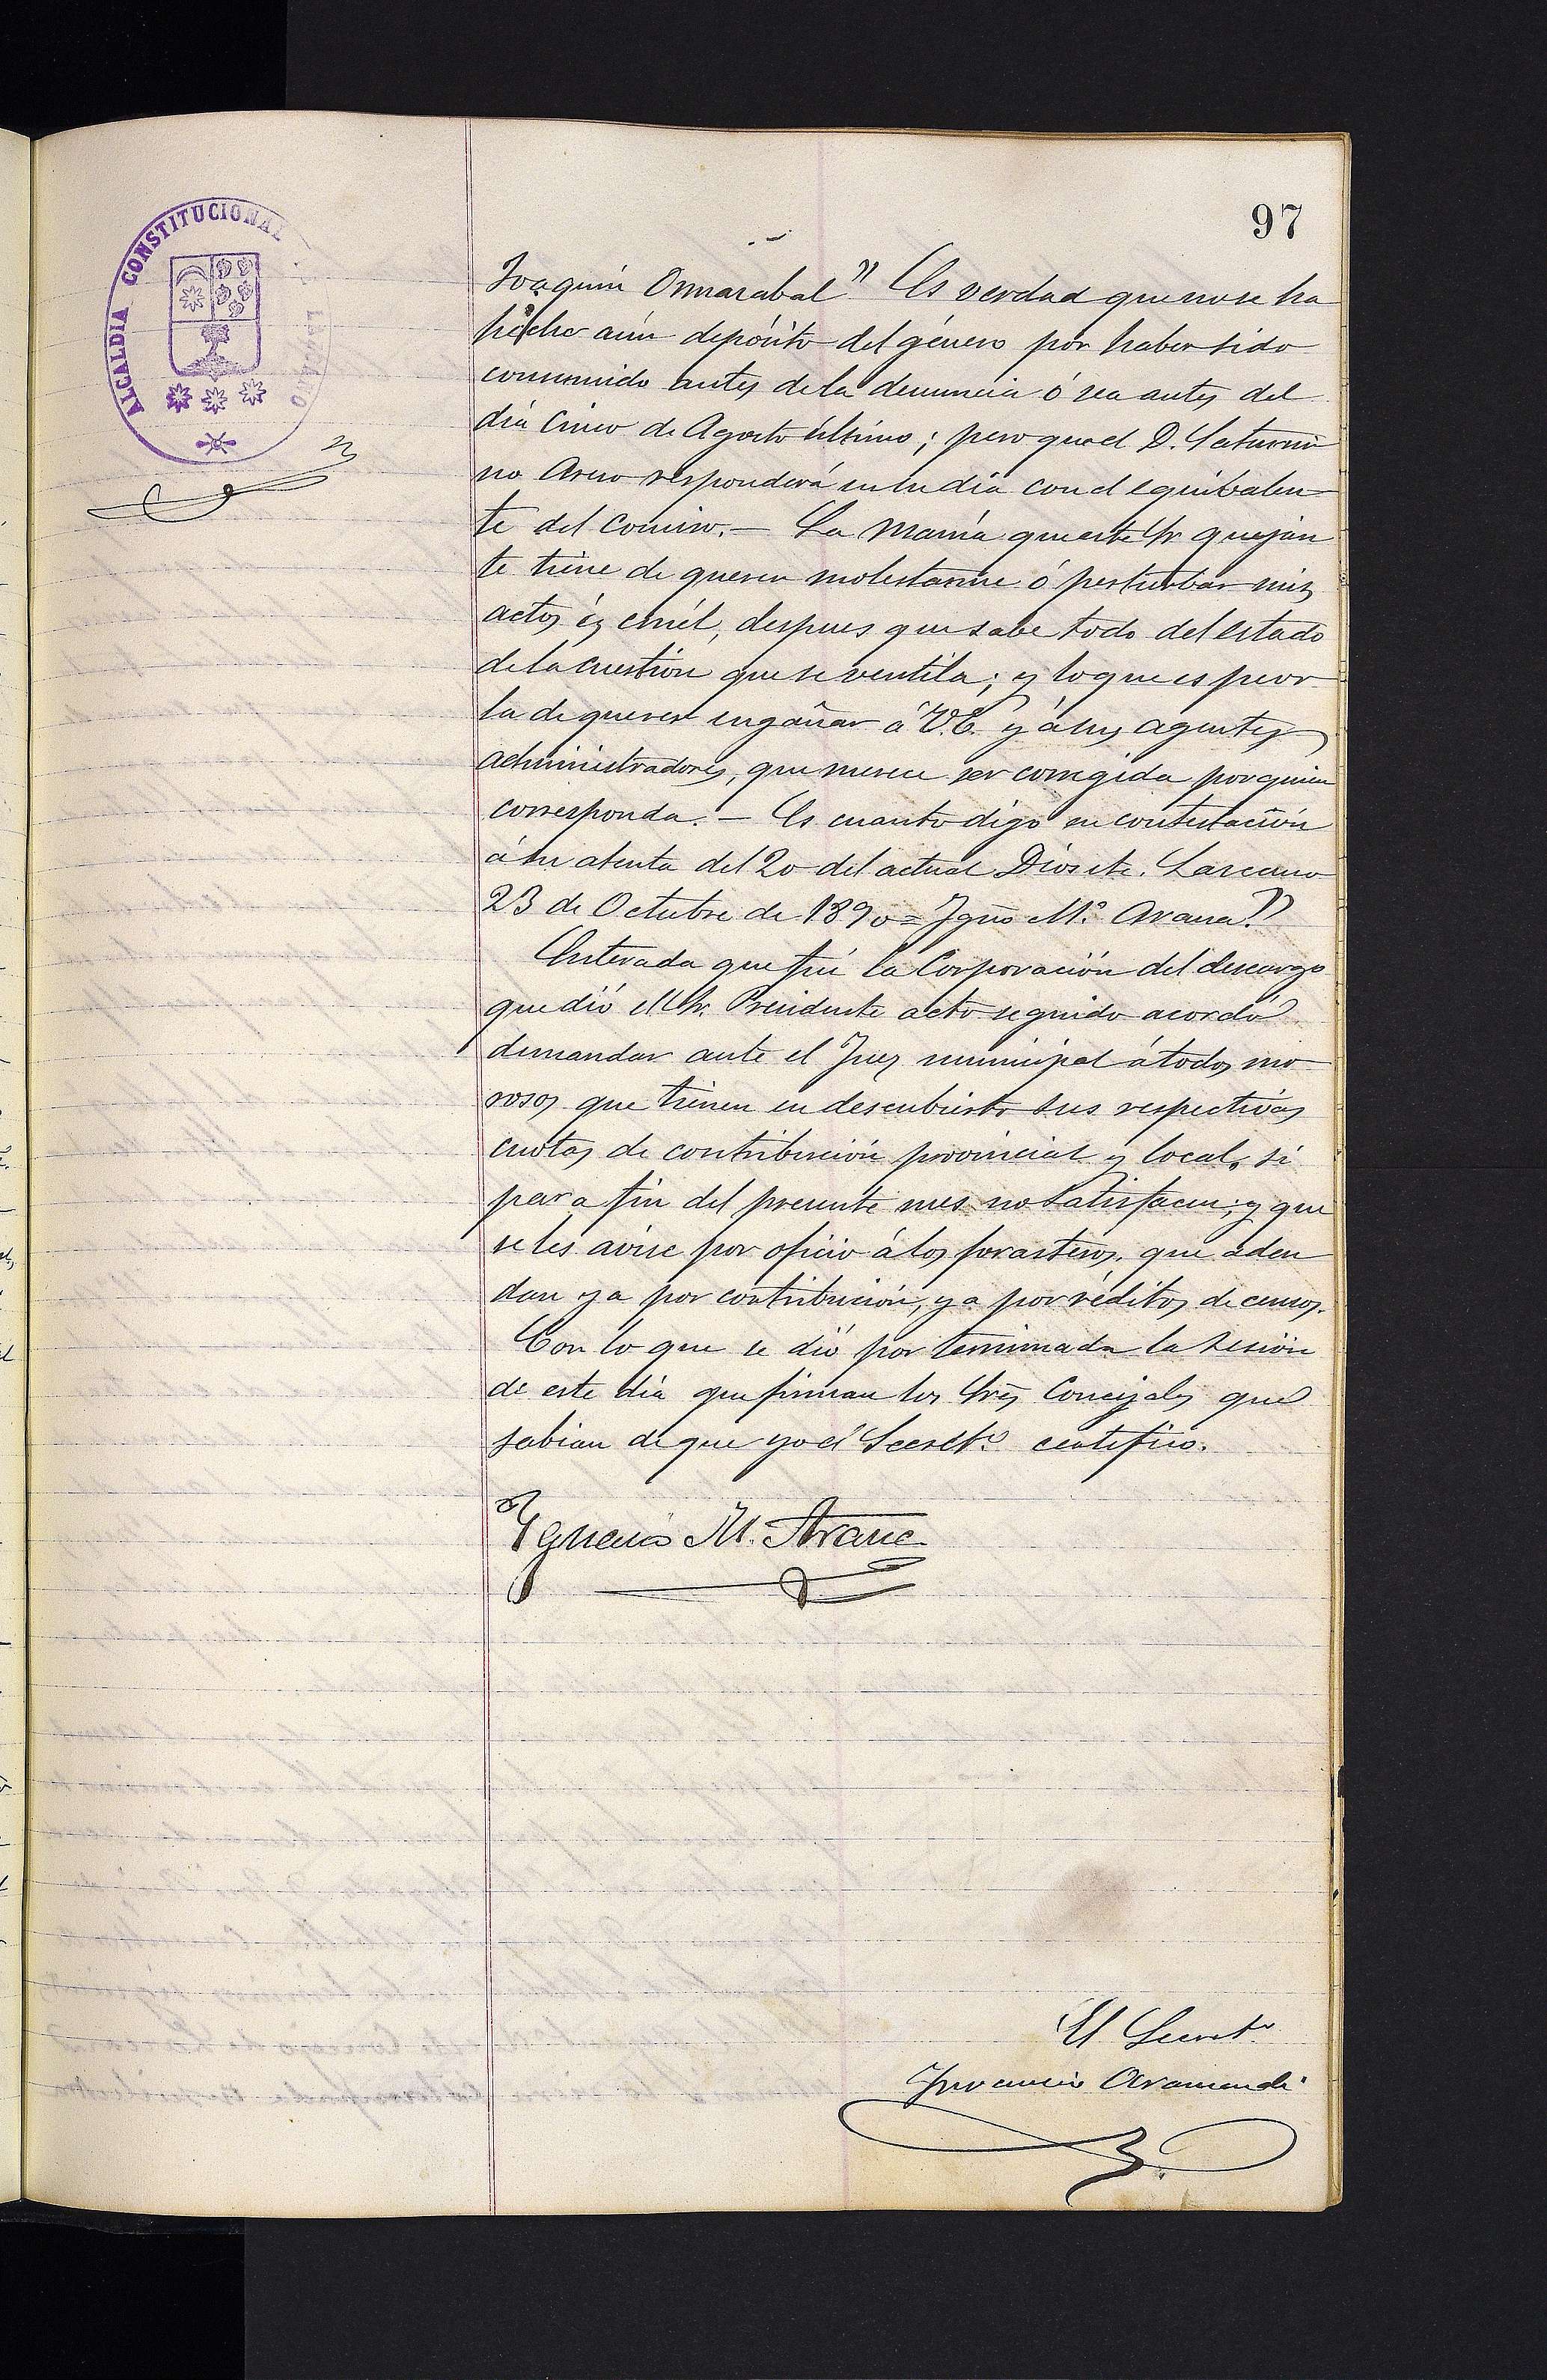 97
ALCALDIA CONSTITUCIONAL LAZCANO
Joaquin Ormazabal" Es verdad que no se ha
hecho aún depósito del género por haber sido
consumido antes de la denuncia ó sea antes del
dia Cinco de Agosto último; pero que el D. Saturni
no responderá en su dia con el equibalen
te del Comiso.- La Manía que este Sr quejan
te tiene de querer molestarme ó pesturbar mis
actos és en él, despues que sabe todo del estado
de la cuestion que se ventila; y lo que es peor
la de querer engañar á V.E. y á sus agentes
administradores, que merece ser corregida por quien
corresponda.- Es cuanto digo en contestación
á su atenta del 20 del actual Dios ete. Lascano
23 de Octubre de 1890 = Ygno M.ª Arana."
Enterada que fué la Corporación del descargo
que dió el Sr. Presidente acto seguido acordó
demandar ante el Juez municipal á todos mo
rosos que tienen en descubierto sus respectivas
cuotas de contribución provincial y local, si
para fin del presente mes no satisfacen; y que
se les avise por oficio á los forasteros, que adeu
dan ya por contribución, ya por réditos de censos.
Con lo que se dió por terminada la sesión
de este dia que firman los Sres Concejales que
sabian de que yo el Secret.º certifico.
Ygnacio M. Arana
El Secret.º
Aramendi